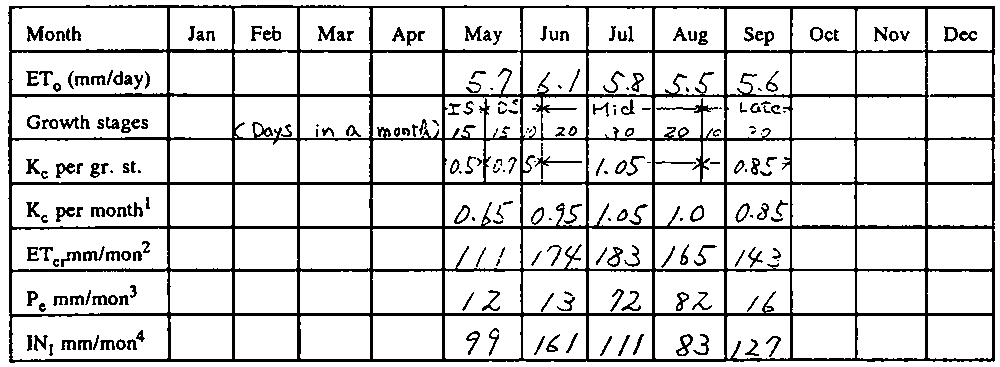 Month Jan Feb Mar Apr May Jun Jul Aug Sep Oct Nov Dec
ETo (mm/day) 5.7 6.1 5.8 5.5 5.6
IS DS Mid Late
Growth stages (Days in a month) 15 15 10 20 30 20 10 30
Kc per gr. st. 0.5 0.75 1.05 0.85
Kc per month1 0.65 0.95 1.05 1.0 0.85
ETcrmm/mon2 111 174 183 165 143
Pe mm/mon3 12 13 72 82 16
INI mm/mon4 99 161 111 83 127